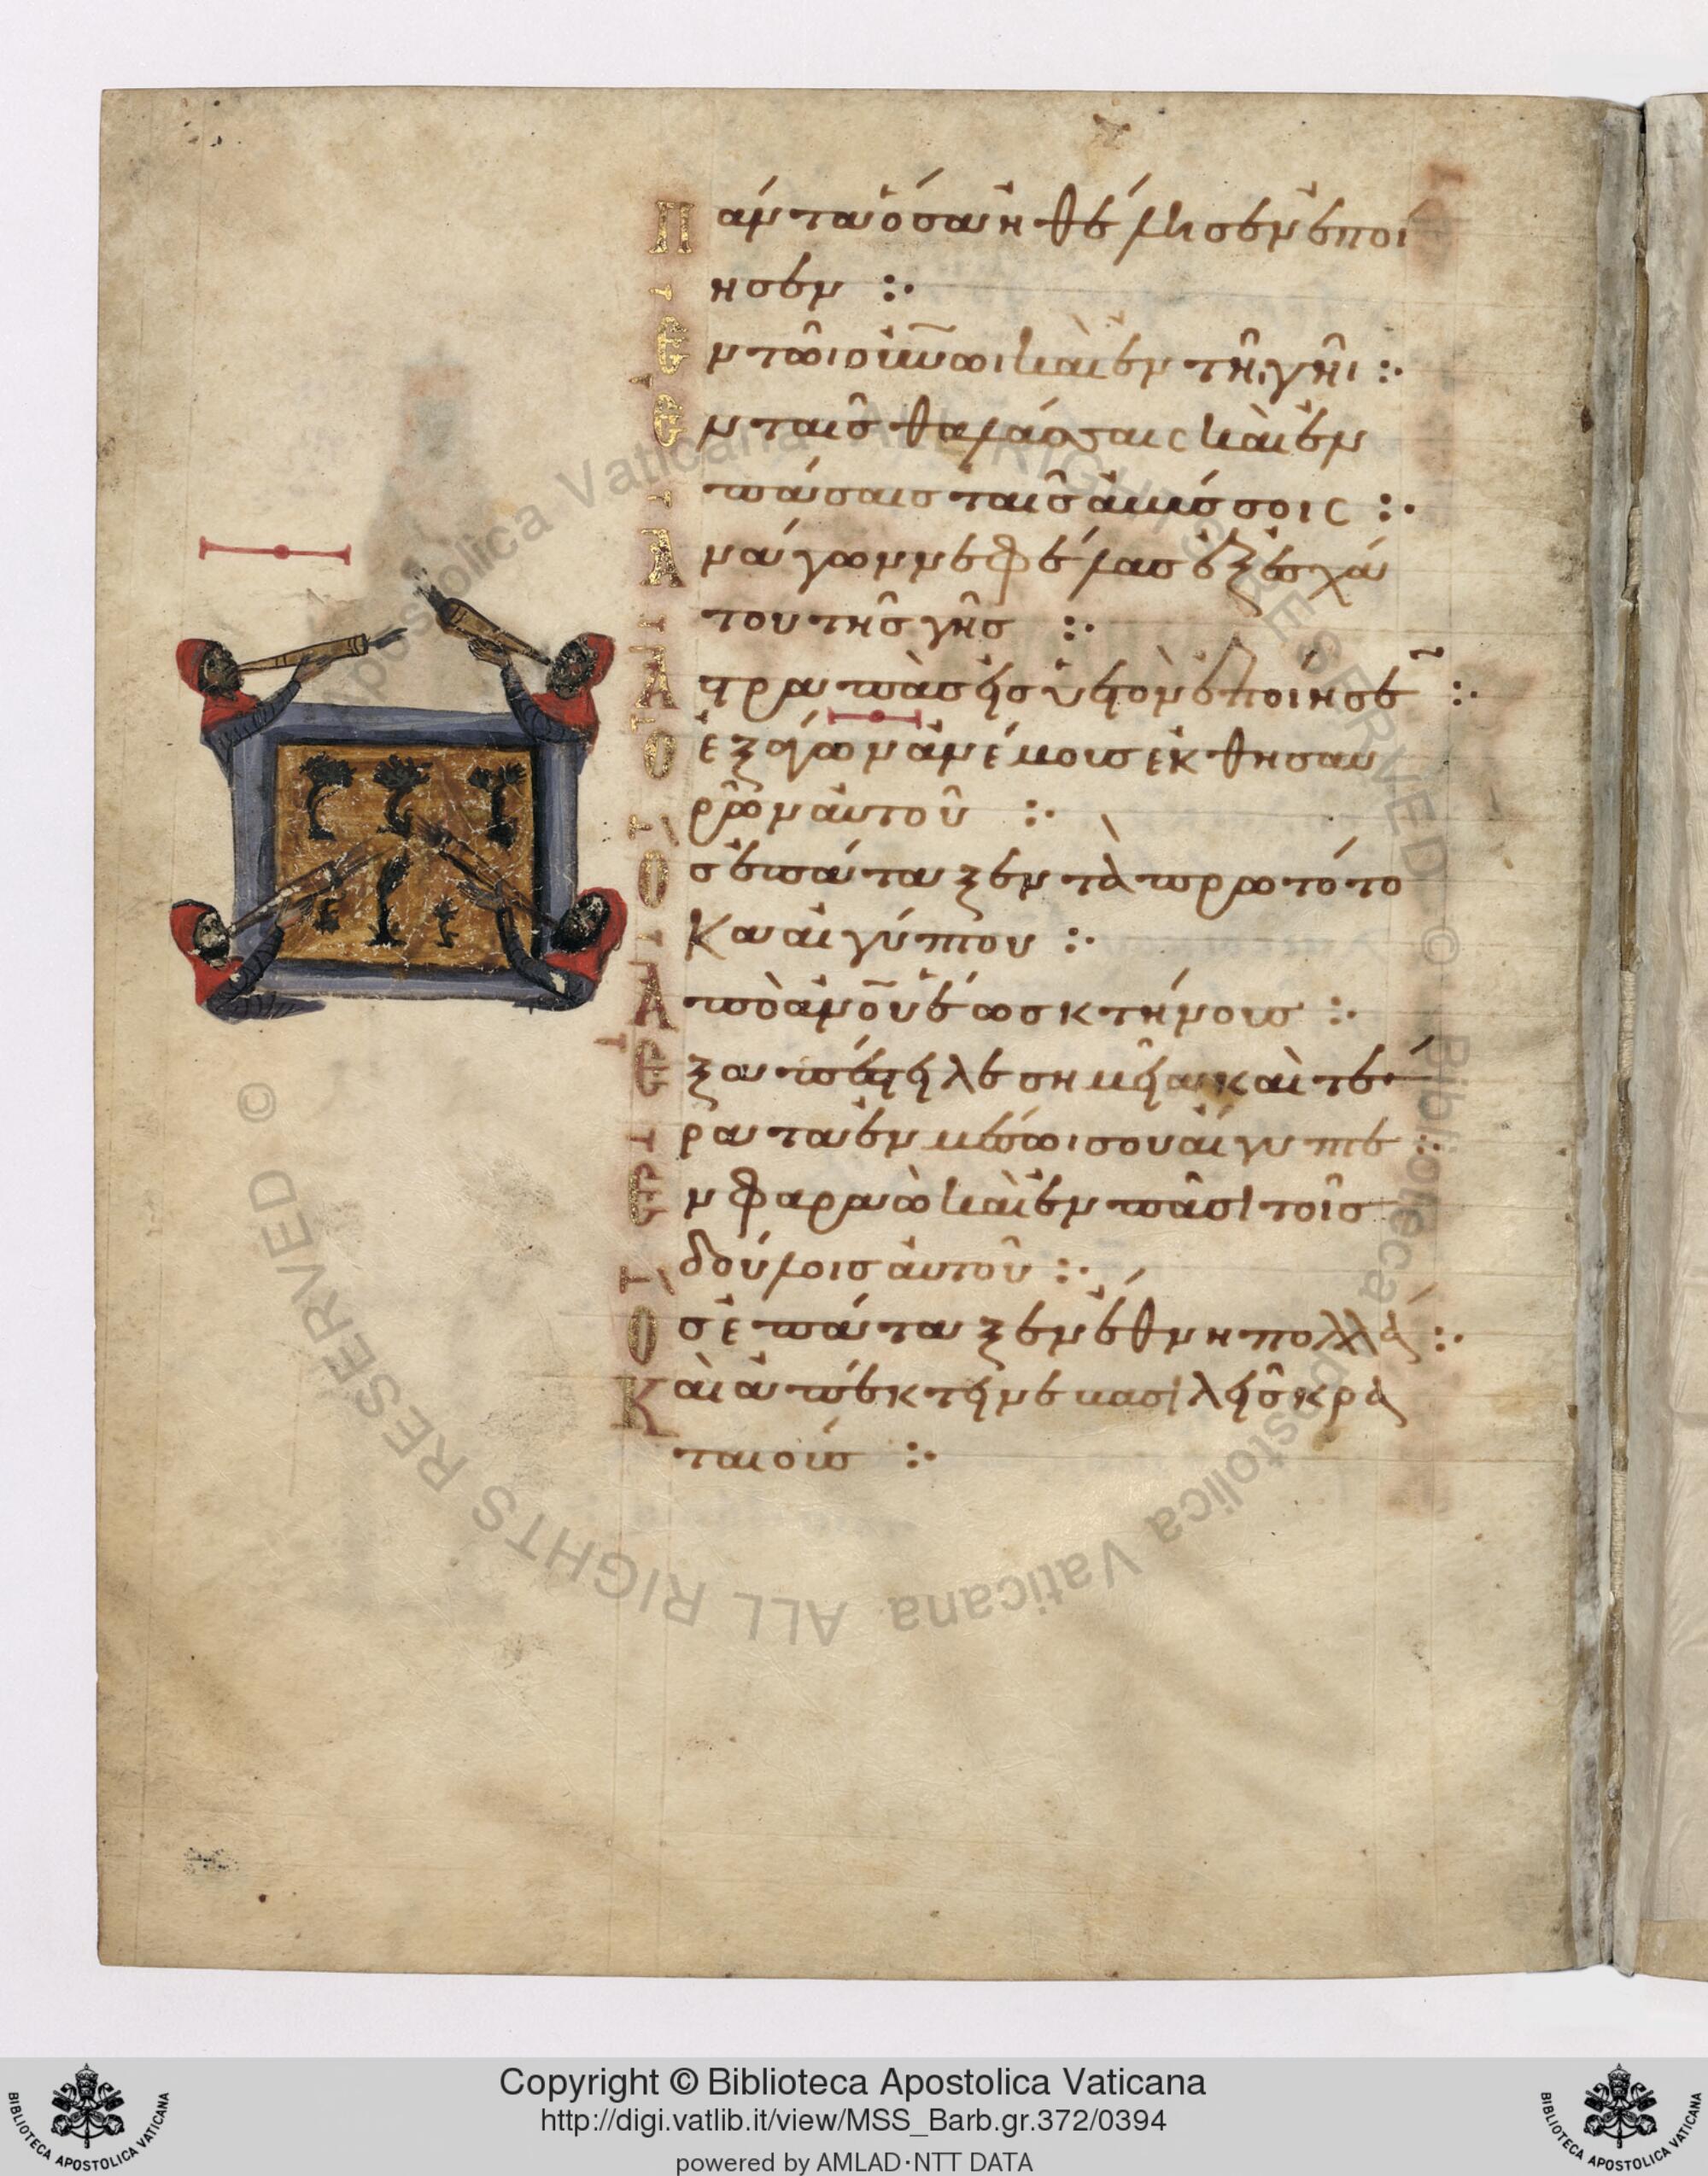 Πάντα ὅσα ἠθέλησεν ἐποί
ησεν :·
Ἐν τῶι οὐ̅νωι καὶ ἐν τῆι γῆι :·
Ἐν ταῖς θαλάσσαις καὶ ἐν
πάσαις ταῖς ἀβύσσοις :·
Ἀνάγων νεφέλας ἐξ ἐσχά
του τῆς γῆς :·
Ἀστραπὰς εἰς ὑετὸν ἐποίησε̃ :·
Ὁ ἐξάγων ἀνέμους ἐκ θησαυ
ρῶν αὐτοῦ :·
Ὃς ἐπάταξεν τὰ πρωτότο
κα αἰγύπτου :·
Ἀπὸ ἀνο̅υ ἕως κτήνους :·
Ἐξαπέστειλε σημεῖα καὶ τέ
ρατα ἐν μέσωι σου αἴγυπτε :·
Ἐν φαραὼ καὶ ἐν πᾶσι τοῖς
δούλοις αὐτοῦ :·
Ὃς ἐπάταξεν ἔθνη πολλὰ :·
Καὶ ἀπέκτεινε βασιλεῖς κρα
ταιούς :·
© Biblioteca Apostolica Vaticana ALL RIGHTS RESERVED
© Biblioteca Apostolica Vaticana ALL RIGHTS RESERVED
Copyright © Biblioteca Apostolica Vaticana
http://digi.vatlib.it/view/MSS_Barb.gr.372/0394
powered by AMLAD·NTT DATA
BIBLIOTECA APOSTOLICA VATICANA
BIBLIOTECA APOSTOLICA VATICANA